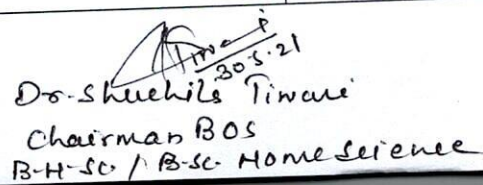 Tiwari
30.5.21
Dr. Shuchila Tiwari
Chairman BOS
B-H-SC / B-SC- Home Science